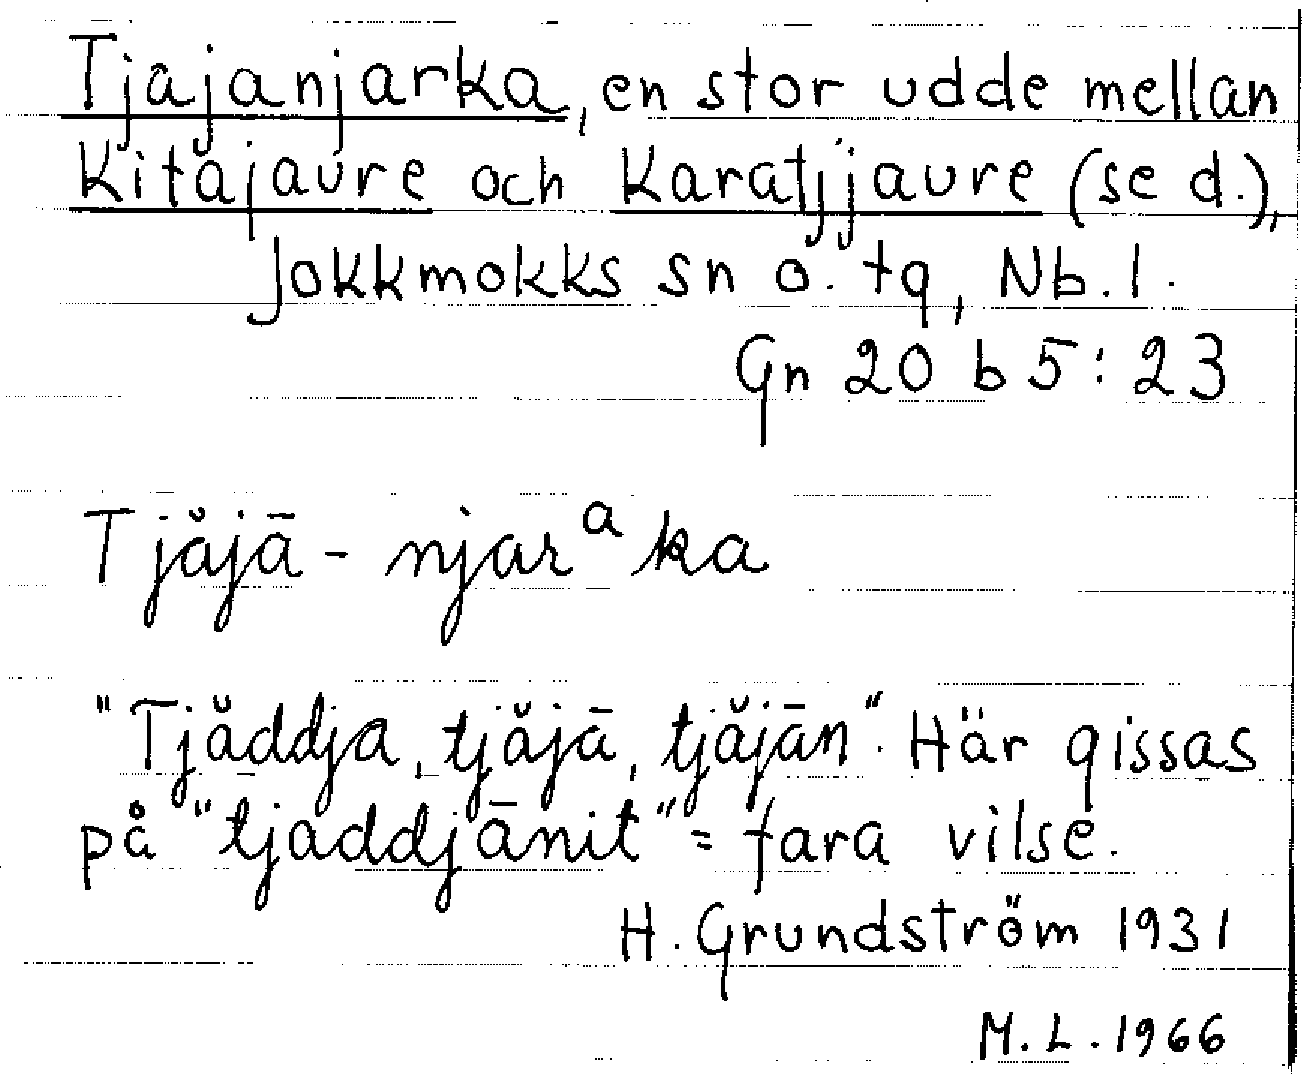 Tjajanjarka, en stor udde mellan
Kitajaure och Karatjjaure (se d.),
Jokkmokks sn o. tg, Nb. l.
Gn 20 b 5:23
Tjåjā-njarᵃka
"Tjåddja, tjåjā, tjåjān". Här gissas
på "tjaddjānit" = fara vilse.
H. Grundström 1931
M.L. 1966